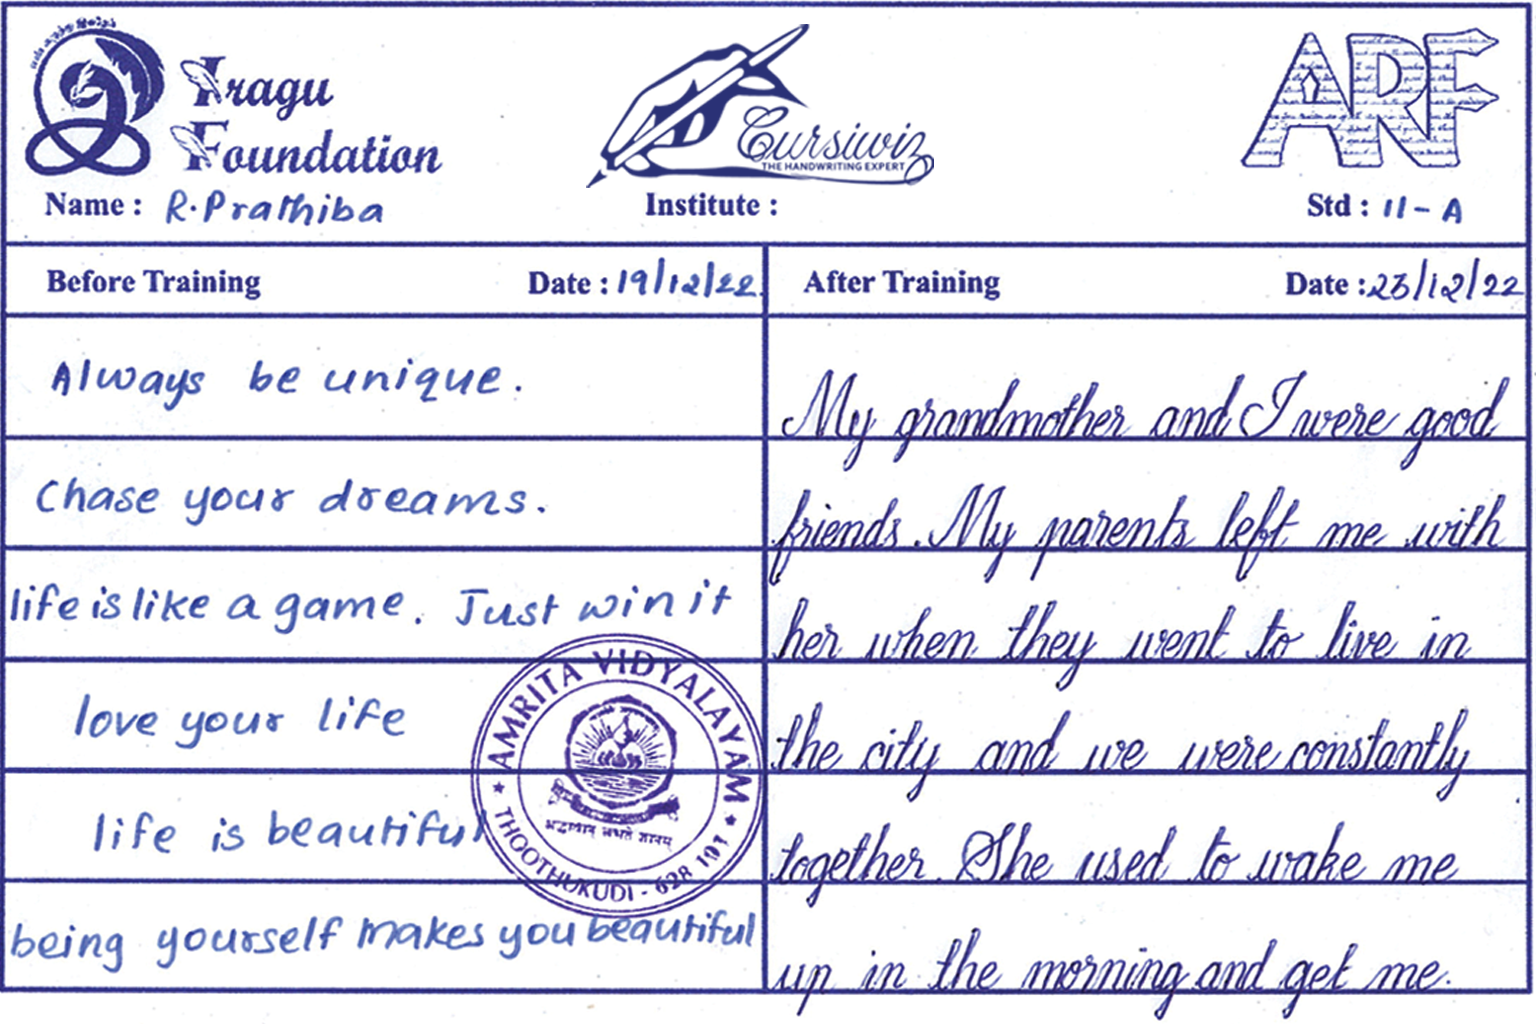 Iragu
Foundation
Cursiwiz
THE HANDWRITING EXPERT
ARF
Name : R. Prathiba
Institute :
Std : 11 - A
Before Training Date : 19/12/22
After Training Date : 23/12/22
Always be unique.
Chase your dreams.
life is like a game. Just win it
love your life
life is beautiful
being yourself makes you beautiful
AMRITA VIDYALAYAM
THOOTHUKUDI - 628 101
श्रद्धावान् लभते ज्ञानम्
My grandmother and I were good
friends. My parents left me with
her when they went to live in
the city and we were constantly
together. She used to wake me
up in the morning and get me.